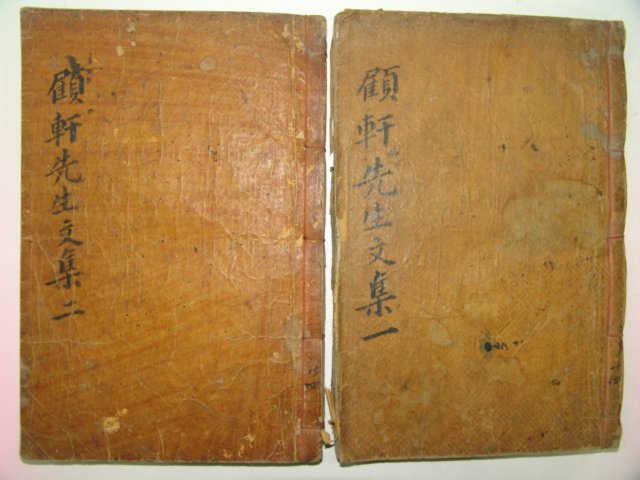 顧軒先生文集一
顧軒先生文集二